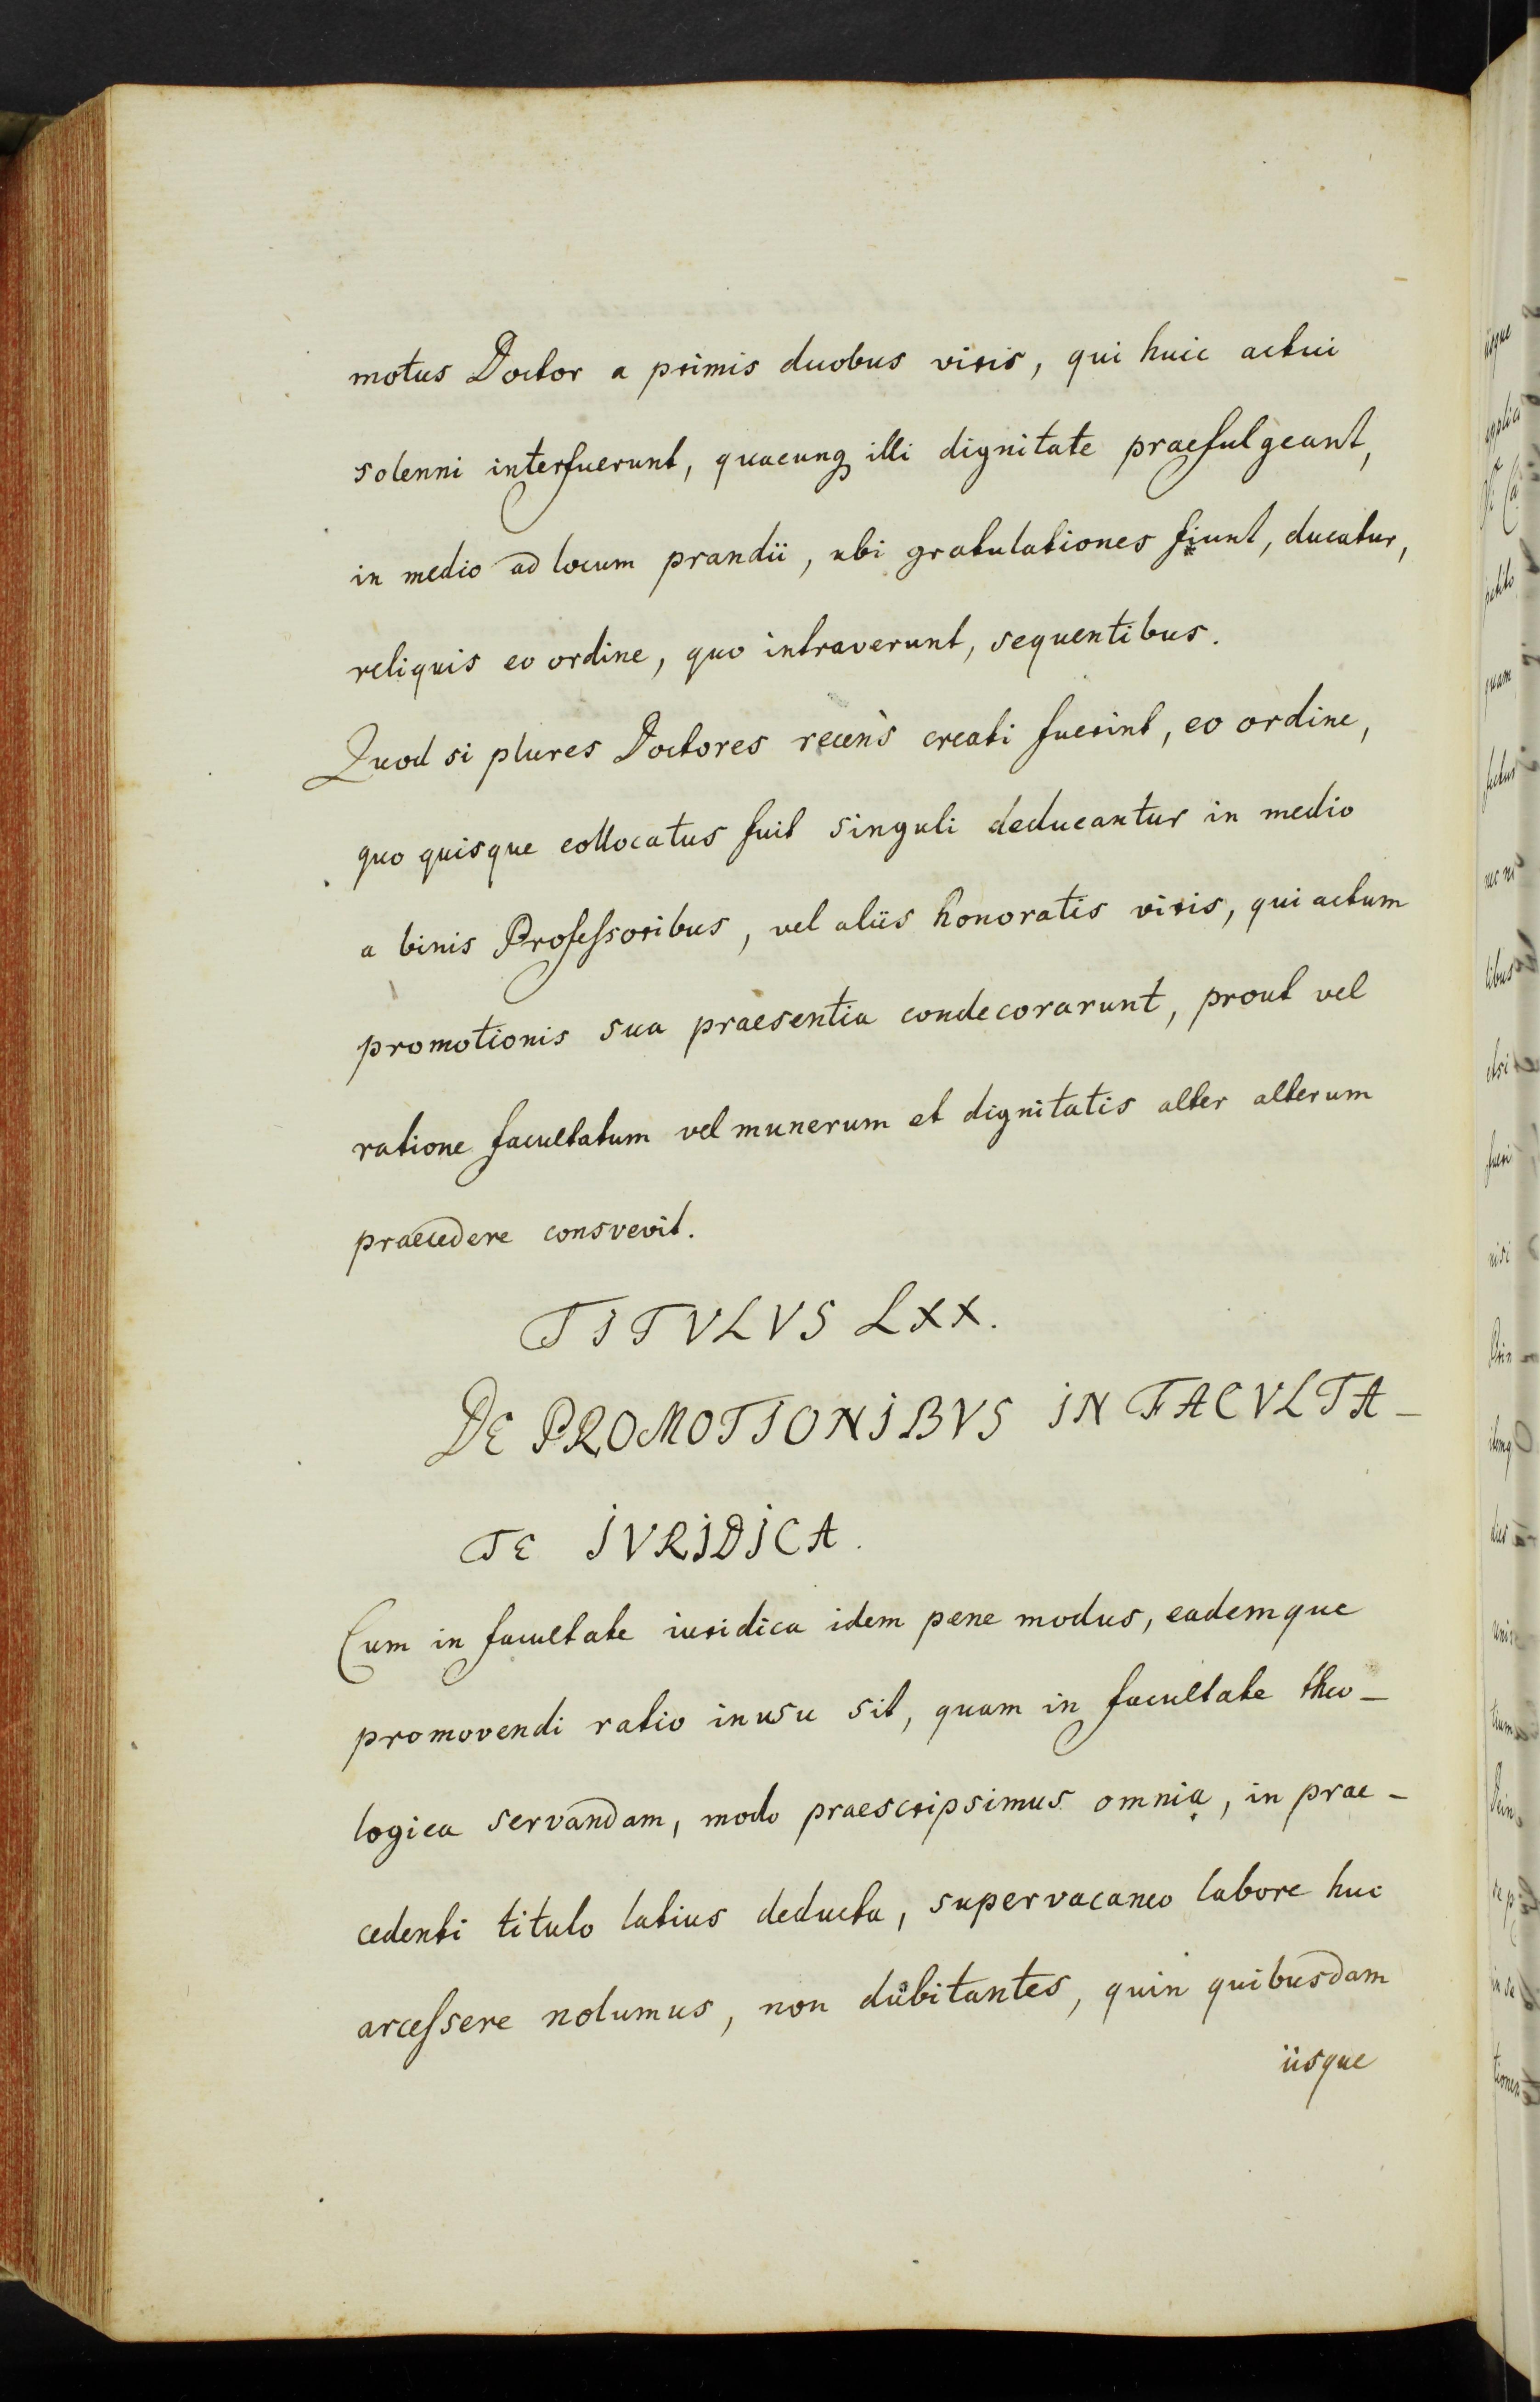 motus Doctor a primis duobus viris, qui huic actui
solenni interfuerunt, quacunq illi dignitate praefulgeant,
in medio ad locum prandii, ubi gratulationes fiunt, ducatur,
reliquis eo ordine, quo intraverunt, sequentibus.
Quod si plures Doctores recèns creati fuerint, eo ordine,
quo quisque collocatus fuit singuli deducantur in medio
a binis Profeſsoribus, vel aliis honoratis viris, qui actum
promotionis sua praesentia condecorarunt, prout vel
ratione facultatum vel munerum et dignitatis alter alterum
praecedere consvevit.
TITVLVS LXX.
DE PROMOTIONIBVS IN FACVLTA-
TE IVRIDICA.
Cum in facultate iuridica idem pene modus, eademque
promovendi ratio in usu sit, quam in facultate theo-
logica servandam, modo praescripsimus omnia, in prae-
cedenti titulo latius deducta, supervacaneo labore huc
arceſsere nolumus, non dubitantes, quin quibusdam
iisque